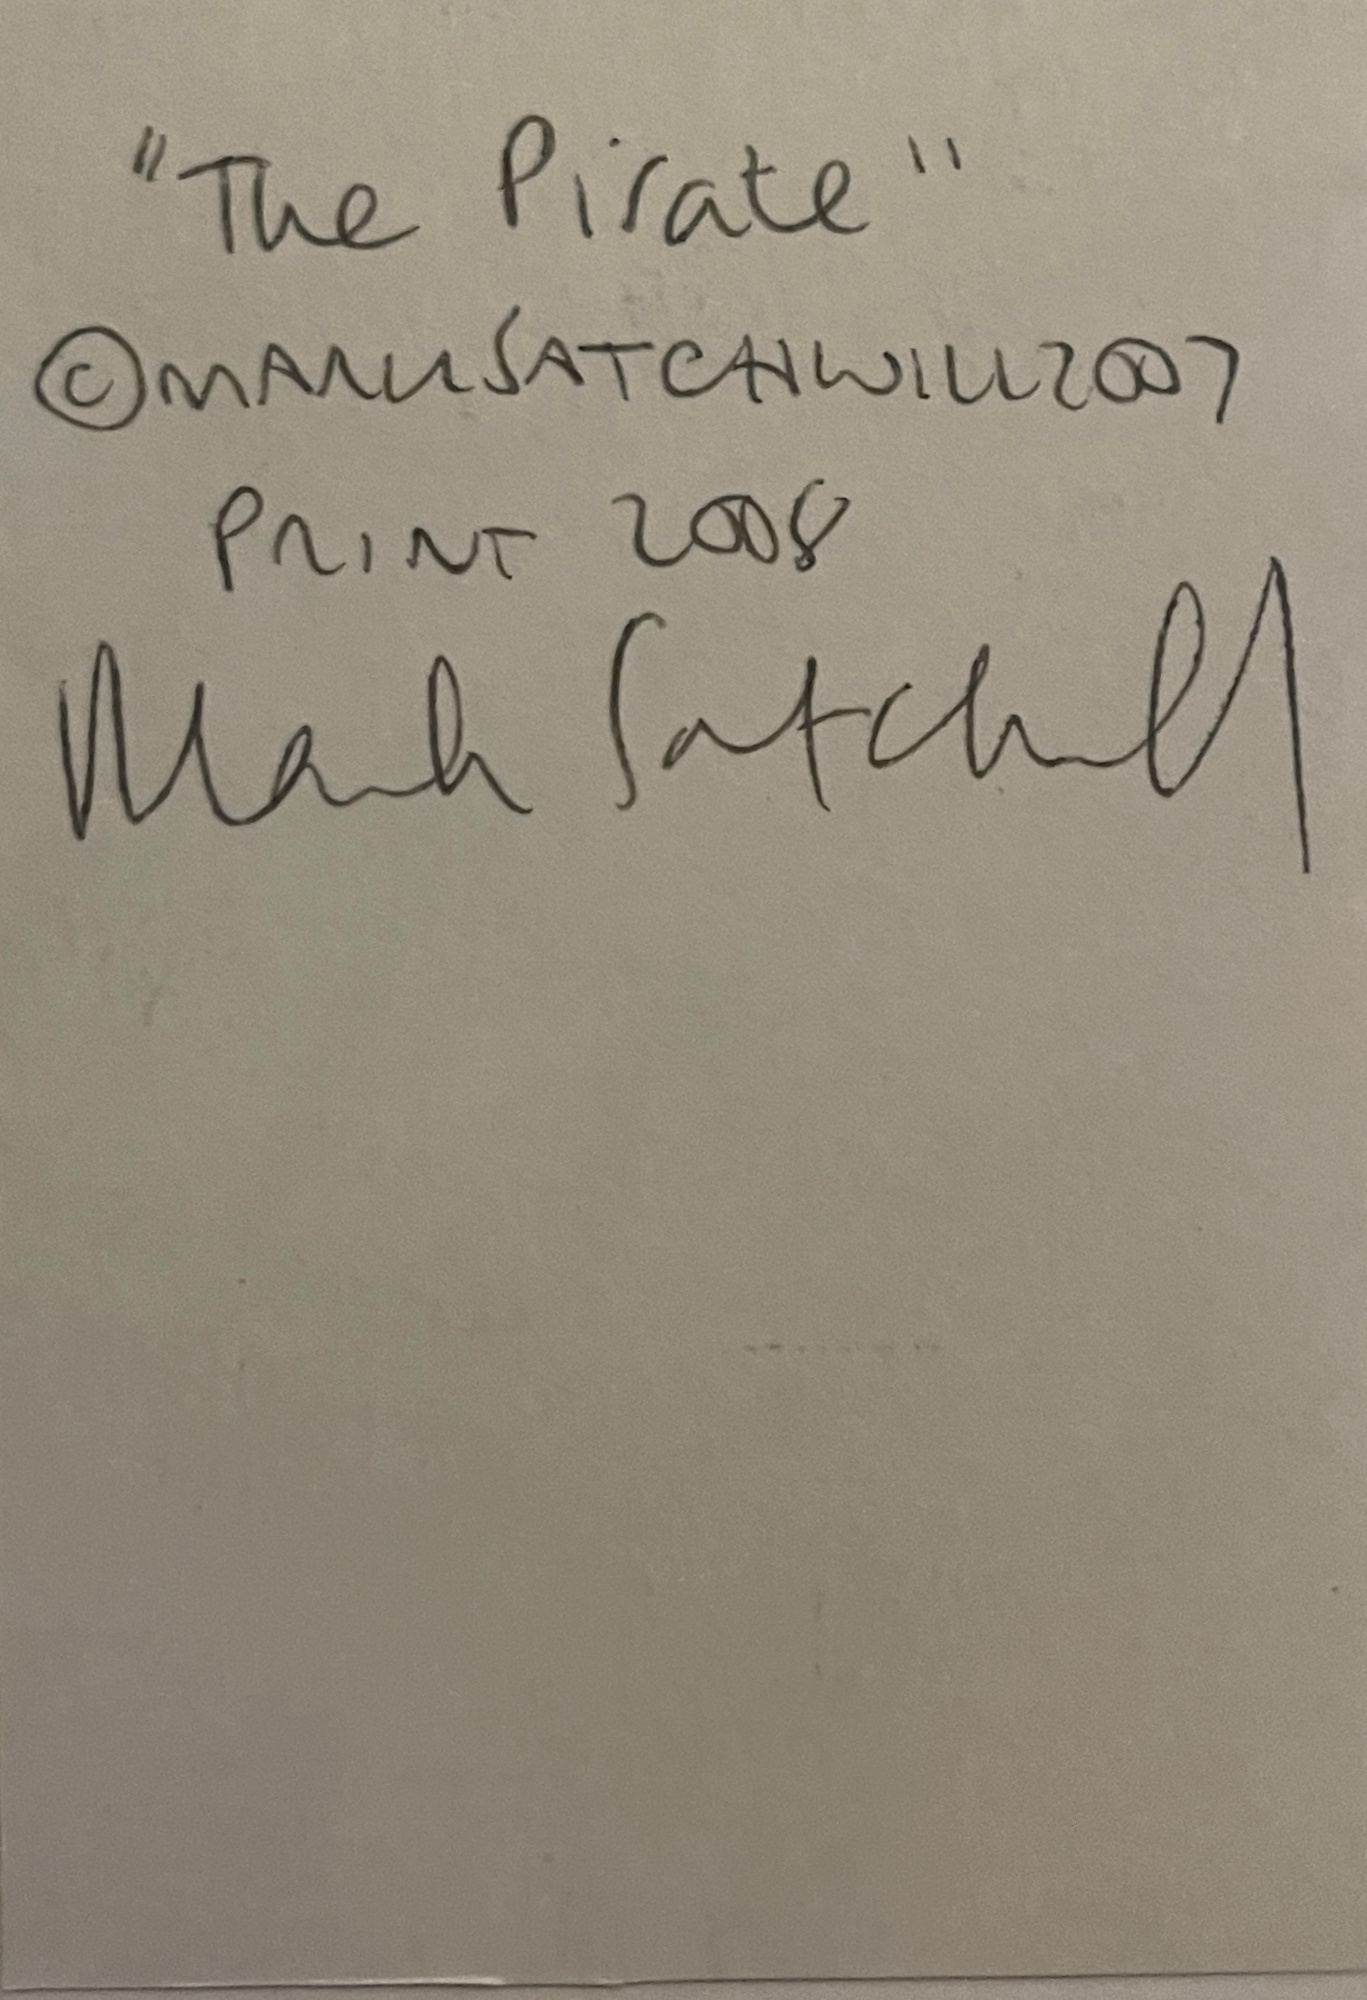 "The Pirate"
©MARKSATCHWILL2007
PRINT 2008
Mark Satchwill